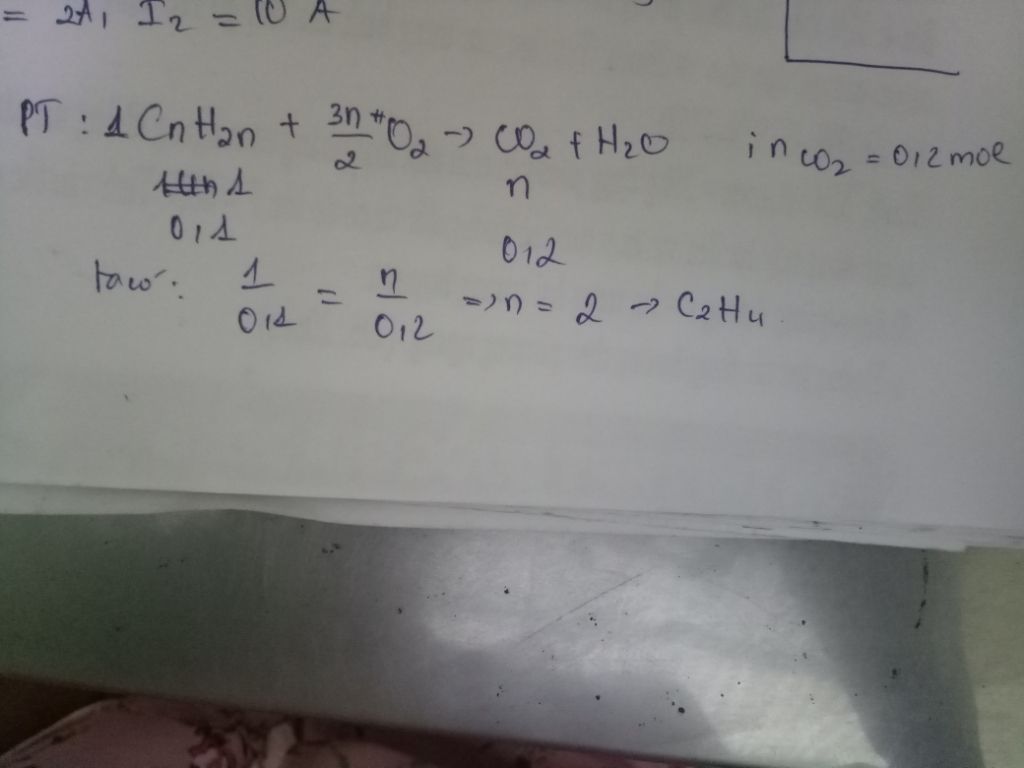 = 2A, I₂ = 10 A
PT : 1 CnH2n + 3n/2 O₂ → CO₂ + H₂O ; nCO₂ = 0,2 mol
1 n
0,1 0,2
ta có : 1/0,1 = n/0,2 => n = 2 → C₂H₄